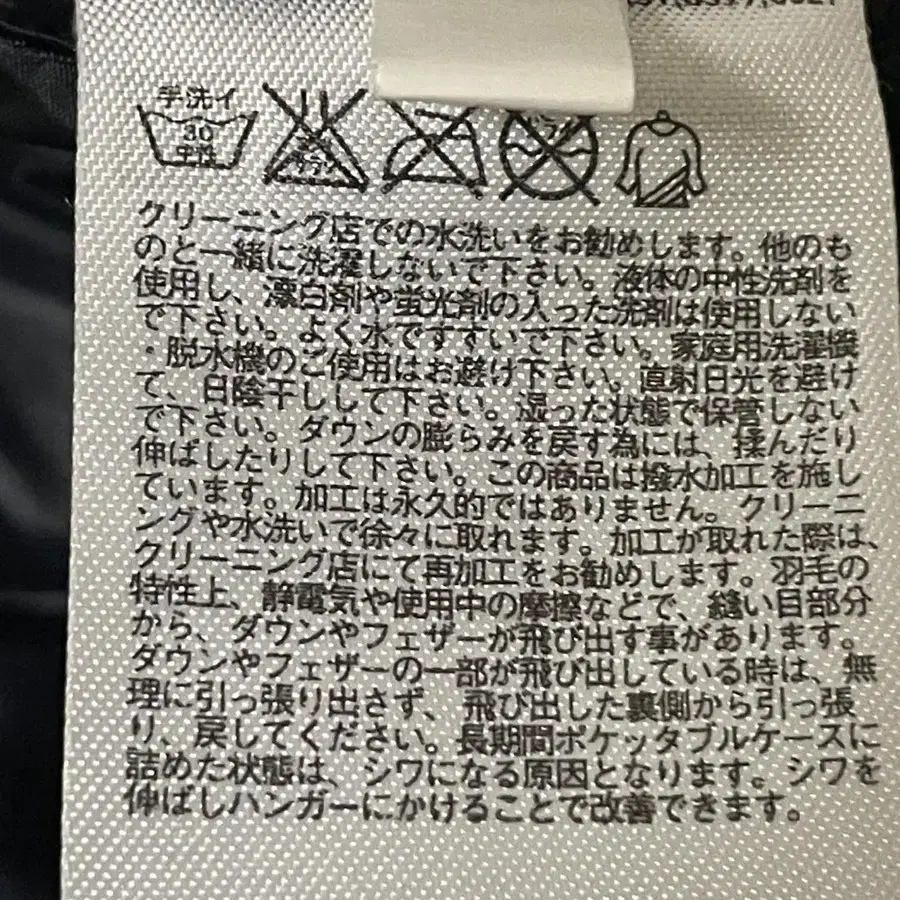 手洗イ
30
中性
クリーニング店での水洗いをお勧めします。他のも
のと一緒に洗濯しないで下さい。液体の中性洗剤を
使用し、漂白剤や蛍光剤の入った洗剤は使用しない
で下さい。よく水ですすいで下さい。家庭用洗濯機
・脱水機のご使用はお避け下さい。直射日光を避け
て、日陰干しして下さい。湿った状態で保管しない
で下さい。ダウンの膨らみを戻す為には、揉んだり
伸ばしたりして下さい。この商品は撥水加工を施し
ています。加工は永久的ではありません。クリーニ
ングや水洗いで徐々に取れます。加工が取れた際は、
クリーニング店にて再加工をお勧めします。羽毛の
特性上、静電気や使用中の摩擦などで、縫い目部分
から、ダウンやフェザーが飛び出す事があります。
ダウンやフェザーの一部が飛び出している時は、無
理に引っ張り出さず、飛び出した裏側から引っ張
り、戻してください。長期間ポケッタブルケースに
詰めた状態は、シワになる原因となります。シワを
伸ばしハンガーにかけることで改善できます。